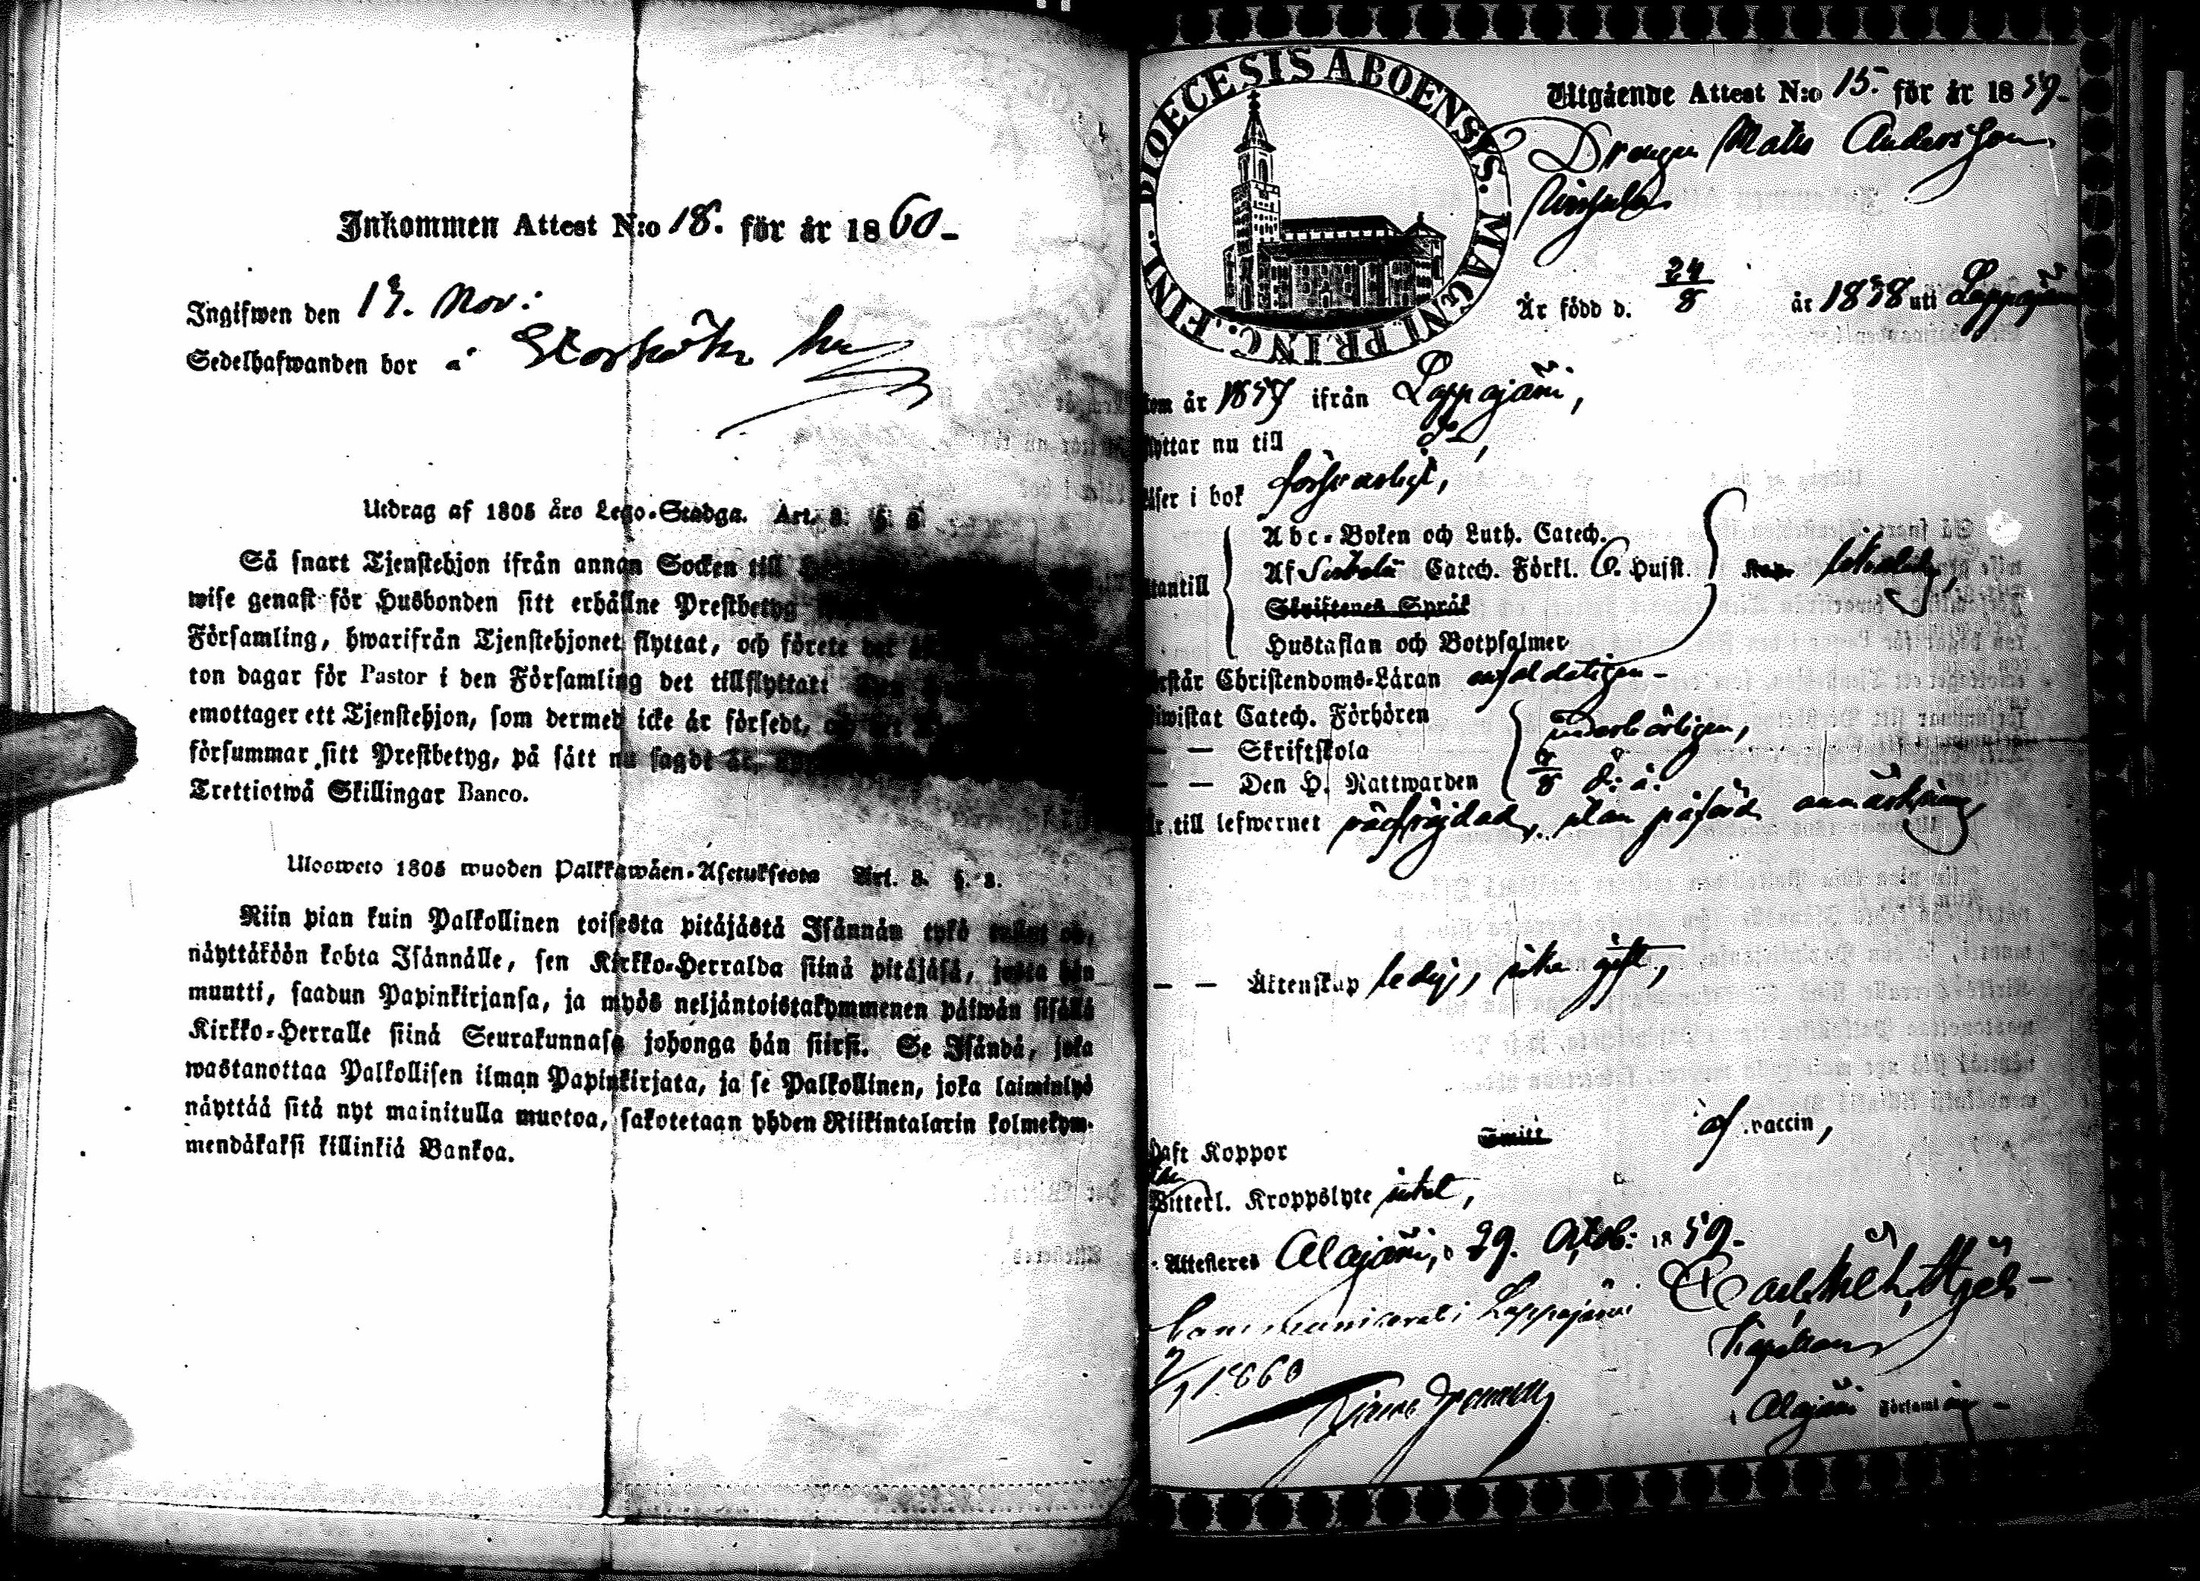 Inkommen Attest N:o 18. för år 1860-
Ingifwen den 13. Nov:
Sedelhafwanden bor å
Utdrag af 1805 års Lego-Stadga. Art. 8. §. 8
Så snart Tjenstehjon ifrån annan Socken till
wise genast för Husbonden sitt erhållne Prestbetyg
Församling, hwarifrån Tjenstehjonet flyttat, och förete det
ton dagar för Pastor i den Församling det tillflyttat. Den
emottager ett Tjenstehjon, som dermed icke är försedt,
försummar sitt Prestbetyg, på sätt nu sagdt är,
Trettiotwå Skillingar Banco.
Ulosweto 1805 wuoden Palkkawäen-Asetuksesta Art. 8. §. 8.
Niin pian kuin Palkollinen toisesta pitäjästä Isännän tykö tullut on,
näyttäköön kohta Isännälle, sen Kirkko-Herralda siinä pitäjäsä, josta hän
muutti, saadun Papinkirjansa, ja myös neljäntoistakymmenen päiwän sisällä
Kirkko-Herralle siinä Seurakunnasa johonga hän siirsi. Se Isändä, joka
wastanottaa Palkollisen ilman Papinkirjata, ja se Palkollinen, joka laiminlyö
näyttää sitä nyt mainitulla muotoa, sakotetaan yhden Riikintalarin kolmekym-
mendäkaksi killinkiä Bankoa.
DIOECESIS ABOENSIS. MAGNI. PRINC. FINL.
Utgående Attest N:o 15. för år 1859-
Drengen Matts Andersson
Är född d. 24/8 år 1838 uti Lappajärvi
om år 1857 ifrån Lappajärvi,
yttar nu till d:o,
äser i bok försvarligt,
Abc-Boken och Luth. Catech.
tantill Af Catech. Förkl. Hufst.
Skriftenes Språk
Hustaflan och Botpsalmer
rstår Christendoms-Läran enfaldeligen-
wistat Catech. Förhören
— — Skriftskola
— — Den H. Nattwarden d: å:
r till lefwernet välfrejdad, utan påförd anmärkning,
— — Äktenskap ledig, icke gift,
Haft Koppor Smitt af vaccin,
Witterl. Kroppslyte intet,
Attesteres Alajärvi, d 29. Octob: 1859-
Communicerat i Lappajärvi
Kapellan
1860
Alajärvi Församling